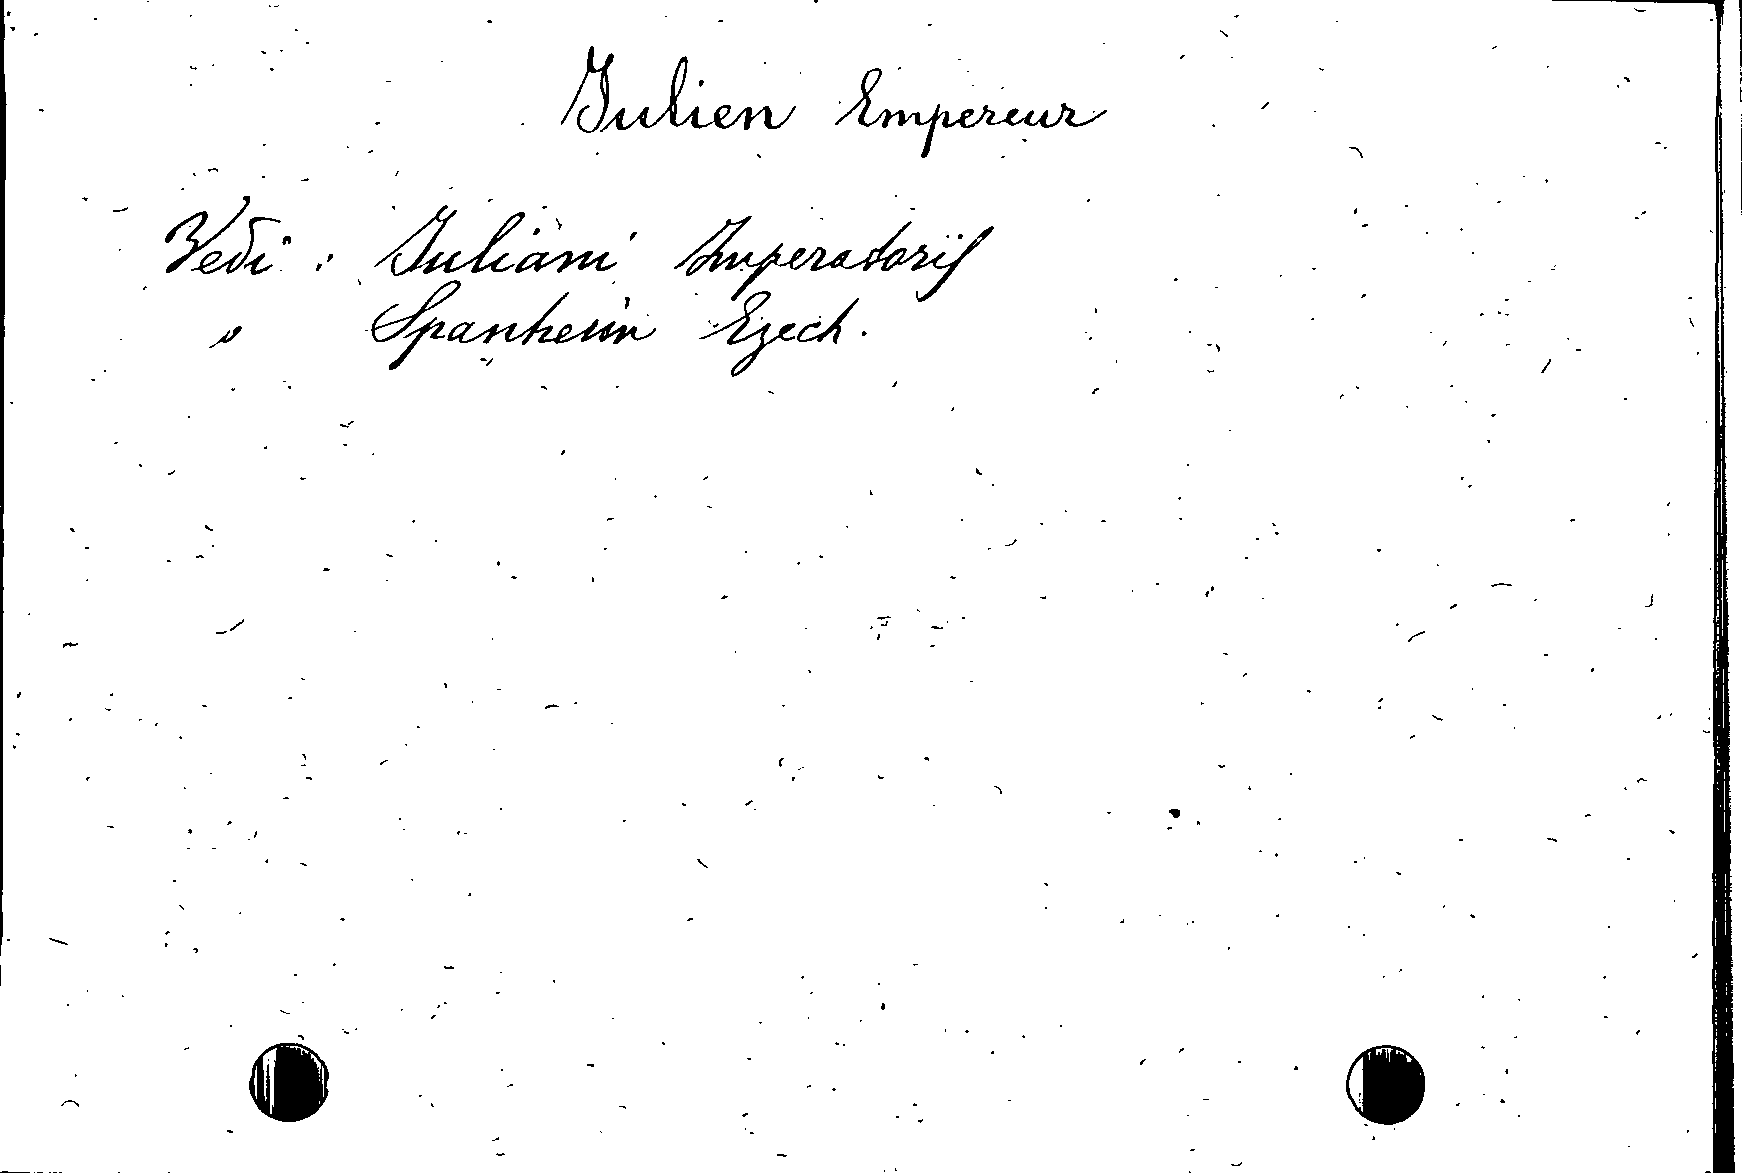 Julien Empereur
Vedi : Juliani Imperatoris
" Spanheim Ezech.